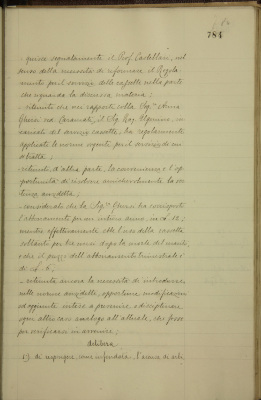 784
quivo segnatamente il Prof. Castellani, nel
senso della necessità di riformare il Regola-
mento pel servizio delle cassette nella parte
che riguarda la discussa materia;
- ritenuto che nei rapporti colla Sig.ra Anna
ved. il Sig. Rag. in-
caricato del servizio cassette, ha regolarmente
applicato le norme vigenti pel servizio di cui
trattasi;
- ritenuta d'altra parte, la convenienza e l'op-
portunità di risolvere amichevolmente la ver-
tenza anzidetta;
- considerato che la Sig.ra ha corrisposto
l'abbonamento per un intero anno, in £. 12;
mentre effettivamente ebbe l'uso della cassetta
soltanto per mesi dopo la morte del marito,
e che il prezzo dell'abbonamento trimestrale è
di £. 5;
- ritenuta ancora la necessità di introdurre
nelle norme anzidette, opportune modificazioni
ed aggiunte intese a prevenire e disciplinare
ogni altro caso analogo all'attuale, che possa
per verificarsi in avvenire;
delibera
1°) di respingere, come infondata, l'accusa di